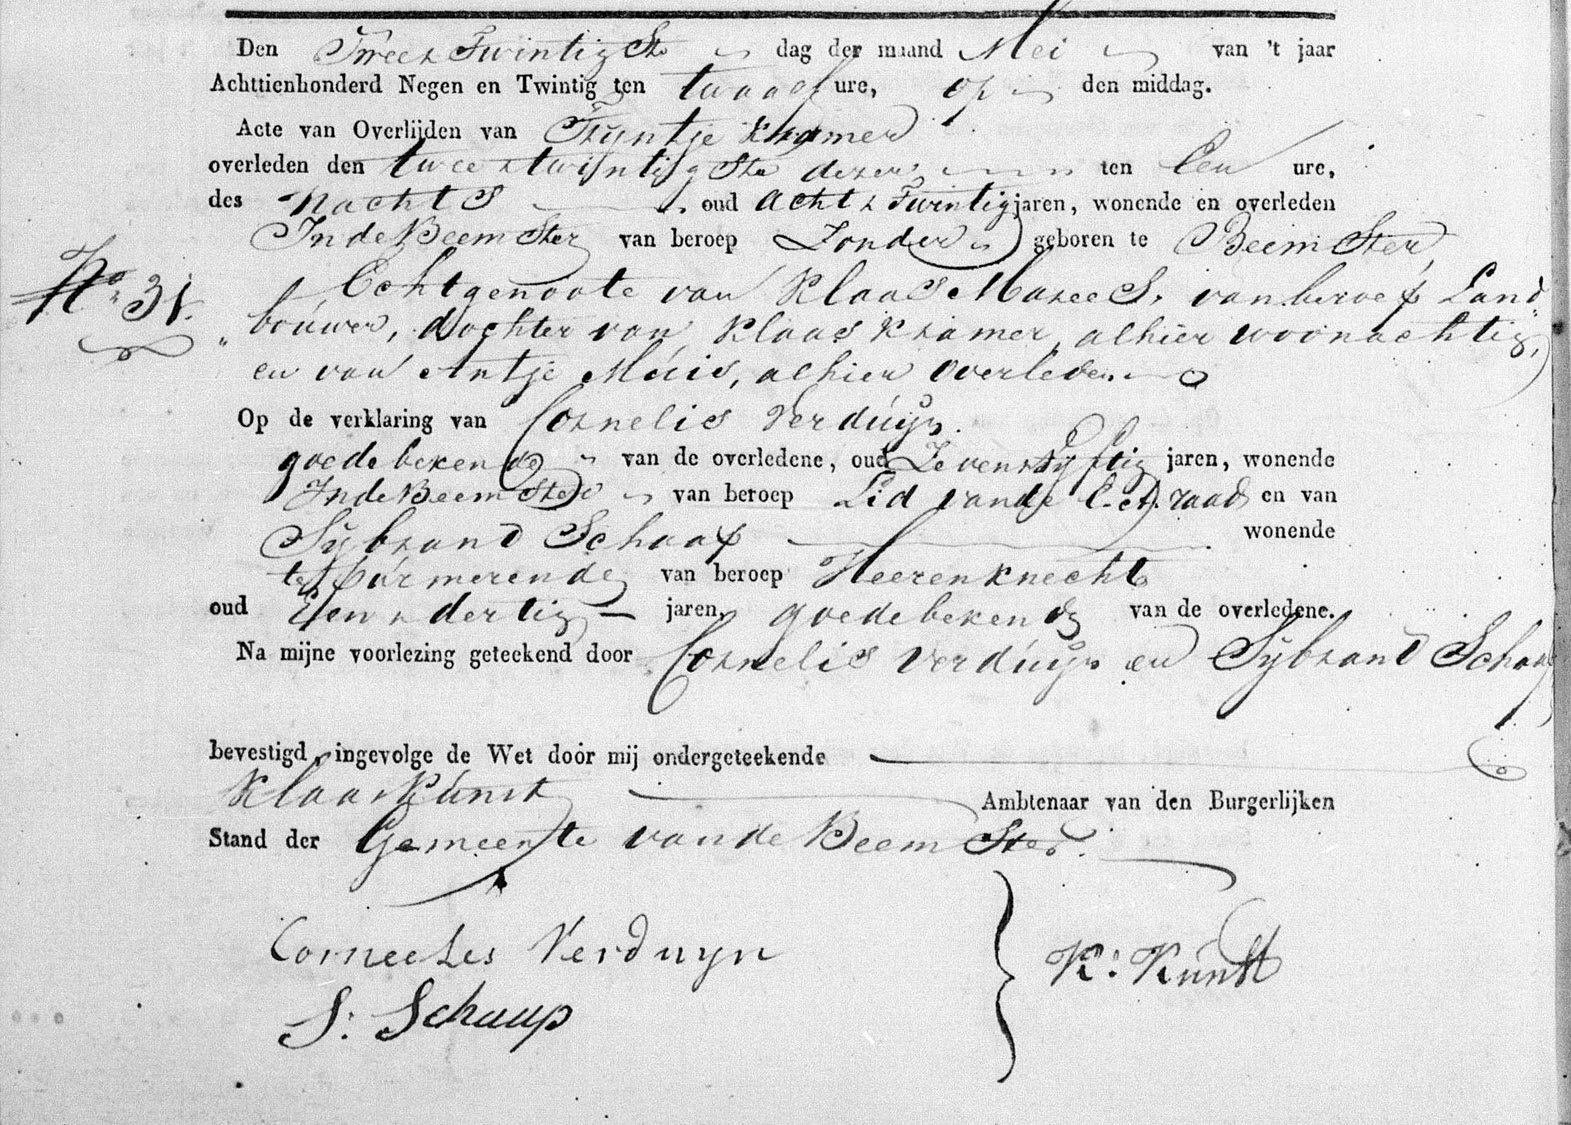 Den Twee & Twintigste dag der maand Mei van 't jaar
Achttienhonderd Negen en Twintig ten twaalf ure, op den middag.
Acte van Overlijden van Trijntje Kramer
overleden den twee & twijntigste dezer, ten Een ure,
des Nachts oud Acht & Twintig jaren, wonende en overleden
In de Beemster van beroep Zonder geboren te Beemster,
No 31.
Echtgenoote van Klaas Mazees, van beroep Land
" bouwer, dochter van Klaas Kramer, alhier woonachtig,
en van Antje Muis, alhier overleden.
Op de verklaring van Cornelis Verduijn.
goede bekende van de overledene, oud Zeven & Vyftig jaren, wonende
In de Beemster van beroep Lid van de raad en van
Sybrand Schaap wonende
te Purmerende van beroep Heerenknecht
oud Een & dertig jaren, goede bekende van de overledene.
Na mijne voorlezing geteekend door Cornelis Verduijn en Sybrand Schaap
bevestigd, ingevolge de Wet door mij ondergeteekende
Klaas Kunst Ambtenaar van den Burgerlijken
Stand der Gemeente van de Beemster.
Corneeles Verduyn
K: Kunst
S: Schaap